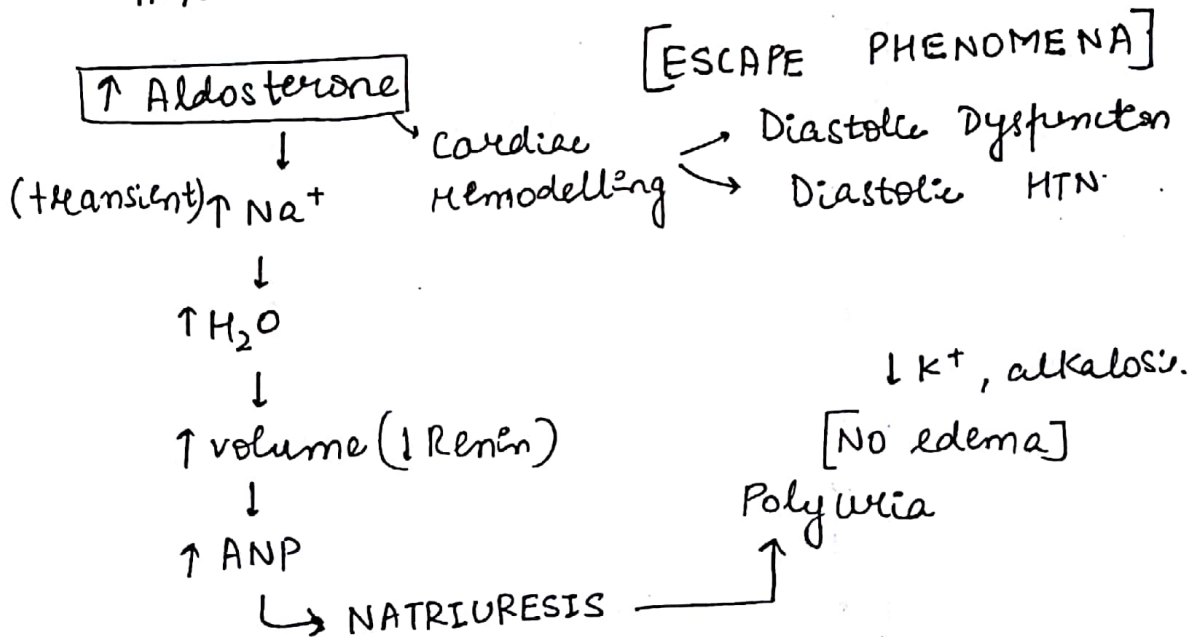 [ESCAPE PHENOMENA]
↑ Aldosterone
↓
Cardiac
remodelling
→ Diastolic Dysfuncton
→ Diastolic HTN.
(transient) ↑ Na⁺
↓
↑ H₂O
↓
↑ volume (↓ Renin)
↓
↑ ANP
↳ NATRIURESIS →
Polyuria
[No edema]
↓ K⁺, alkalosis.